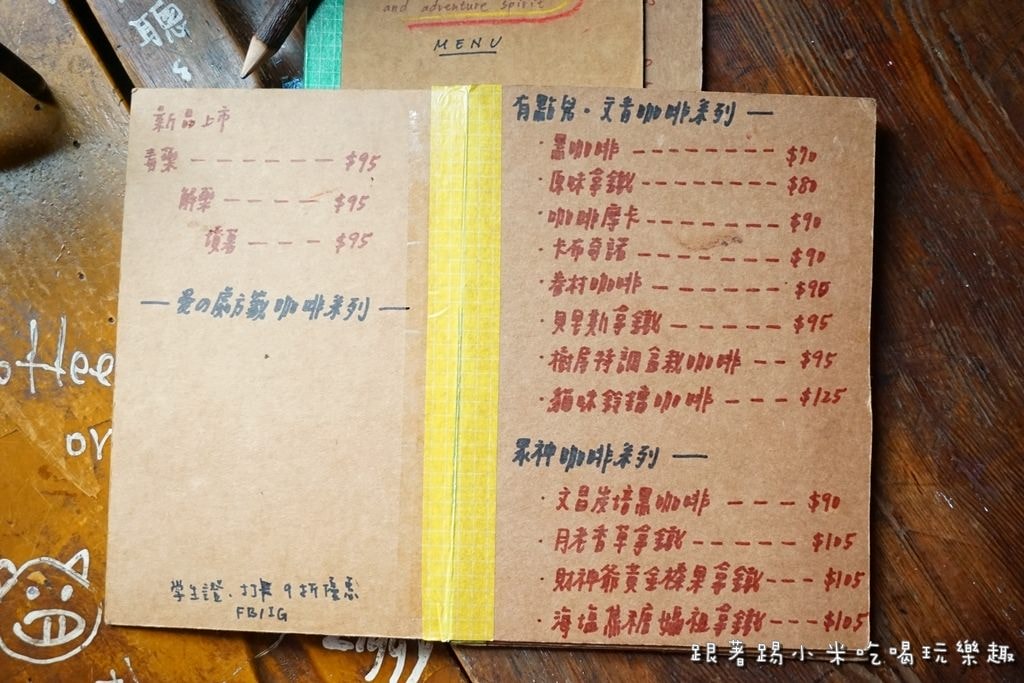 and adventure spirit
MENU
聽
新品上市
毒藥 ------ $95
解藥 ----- $95
墳墓 ---- $95
— 愛の處方籤咖啡系列 —
學生證、打卡9折優惠
FB/IG
有點兒・文青咖啡系列 —
・黑咖啡 -------- $70
・原味拿鐵 -------- $80
・咖啡摩卡 ------- $90
・卡布奇諾 -------- $90
・眷村咖啡 ------- $90
・貝里斯拿鐵 ------ $95
・樹屋特調盆栽咖啡 -- $95
・貓味鈴鐺咖啡 --- $125
眾神咖啡系列 —
・文昌炭培黑咖啡 --- $90
・月老香草拿鐵 ----- $105
・財神爺黃金榛果拿鐵 --- $105
・海塩焦糖媽祖拿鐵 --- $105
offee
or
跟著踢小米吃喝玩樂趣